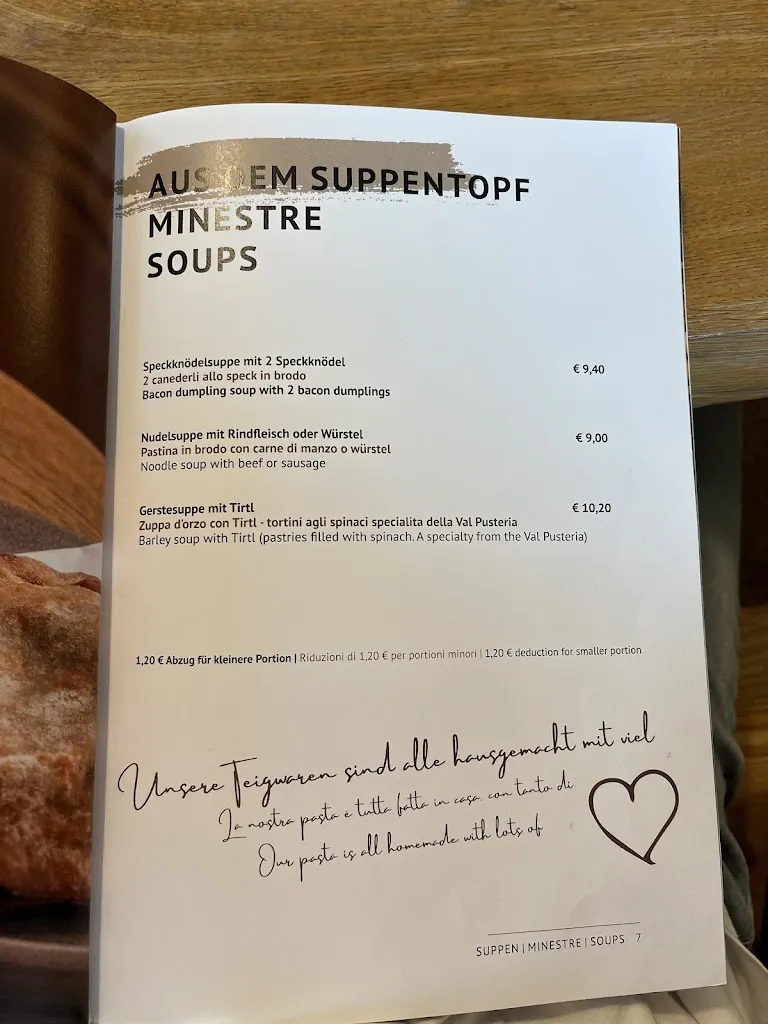 AUS DEM SUPPENTOPF
MINESTRE
SOUPS
Speckknödelsuppe mit 2 Speckknödel
€ 9,40
2 canederli allo speck in brodo
Bacon dumpling soup with 2 bacon dumplings
Nudelsuppe mit Rindfleisch oder Würstel
€ 9,00
Pastina in brodo con carne di manzo o würstel
Noodle soup with beef or sausage
Gerstesuppe mit Tirtl
€ 10,20
Zuppa d'orzo con Tirtl - tortini agli spinaci specialita della Val Pusteria
Barley soup with Tirtl (pastries filled with spinach. A specialty from the Val Pusteria)
1,20 € Abzug für kleinere Portion | Riduzioni di 1,20 € per portioni minori | 1,20 € deduction for smaller portion
Unsere Teigwaren sind alle hausgemacht mit viel
La nostra pasta è tutta fatta in casa, con tanto di
Our pasta is all homemade with lots of
SUPPEN | MINESTRE | SOUPS 7